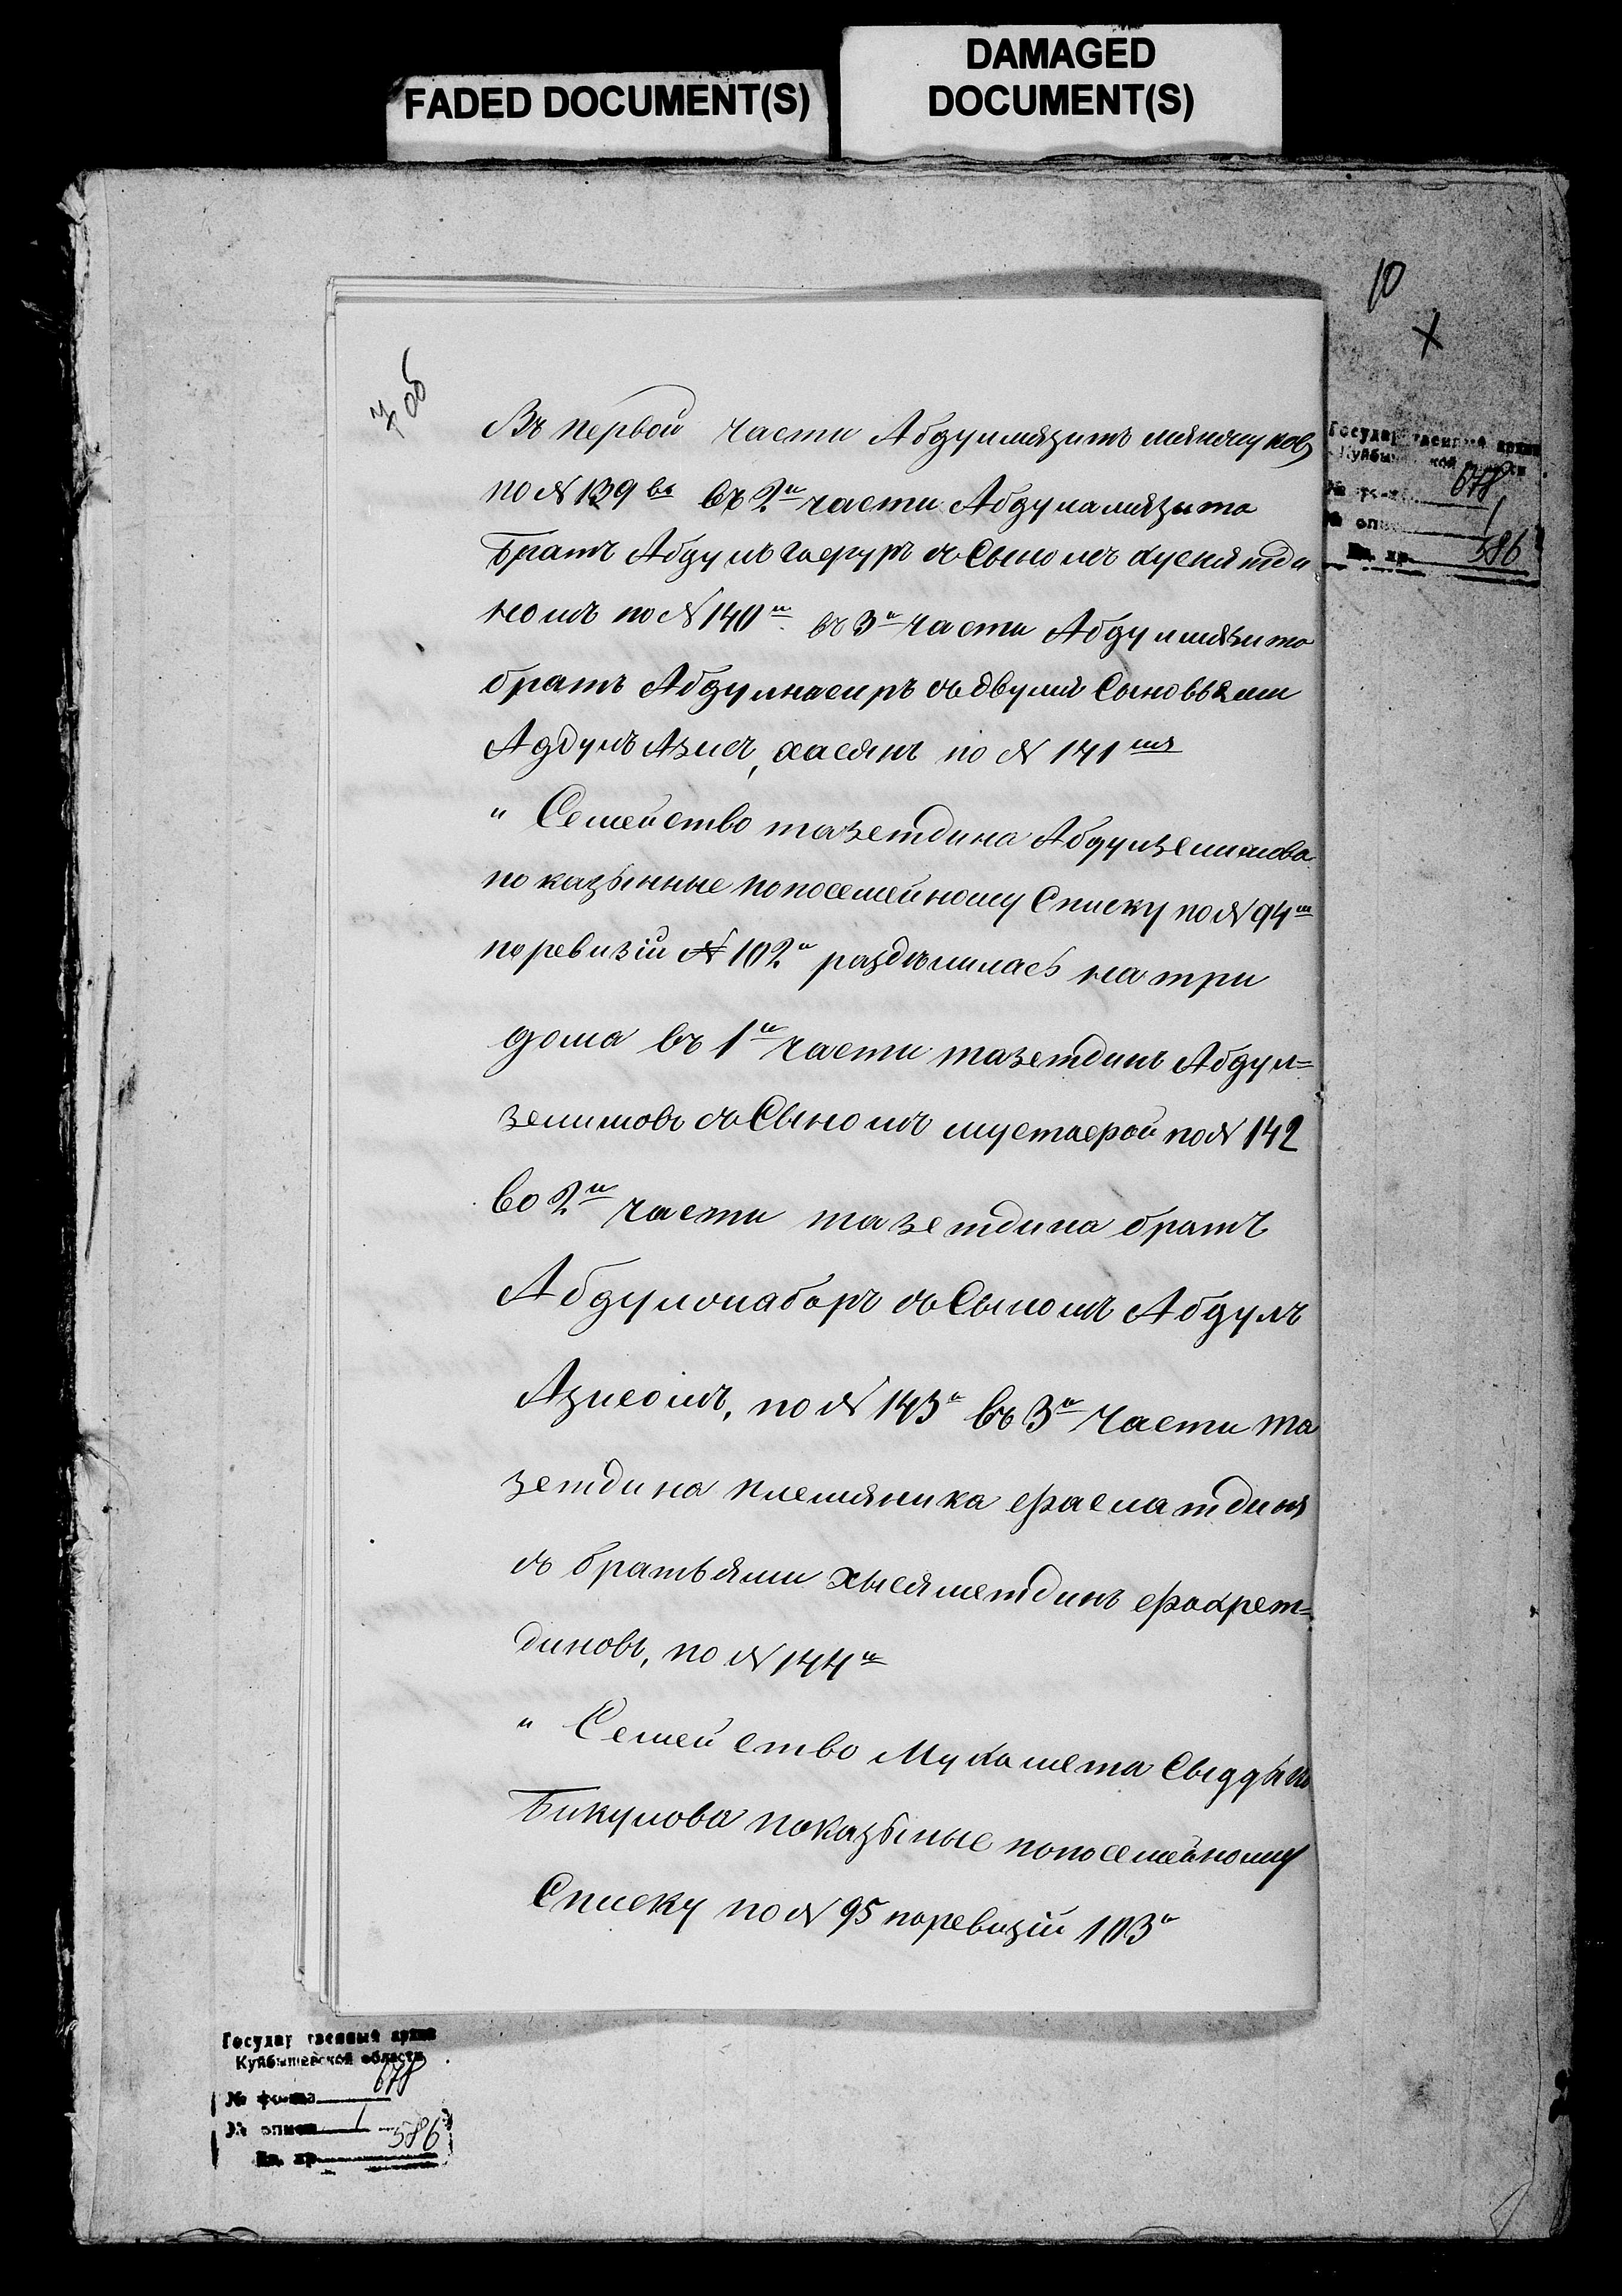 FADED DOCUMENT(S)
DAMAGED
DOCUMENT(S)
10
х
7 об
Государственный архив
Куйбышевской области
№ фонда 678
№ описи 1
Ед. хр. 586
Въ первой части Абдулмязитъ мянчуков
по № 139 въ 2й части Абдуламязита
братъ Абдулъ гафуръ съ Сыномъ хуснятди
номъ по № 140м въ 3й части Абдулмязита
братъ Абдулнасиръ съ двумя Сыновьями
Адбулъ Азисъ, хасянъ по № 141мя
" Семейство тазетдина Абдулзелилова
показынные попосемейному Списку по № 94м
поревизiи № 102й раздѣлилась на три
дома въ 1й части тазетдинъ Абдул=
зелиловъ съ Сыномъ мустафой по № 142
во 2й части тазетдина братъ
Абдулъ съ Сыномъ Абдулъ
Азисомъ, по № 143й въ 3й части та
зетдина племяника
съ братьями фахрет=
диновъ, по № 144й
" Семейство Мухамета
Бикулова показыные попосемейному
Списку по № 95 поревизiи 103й
Государственный архив
Куйбышевской области
№ фонда 678
№ описи 1
Ед. хр. 586